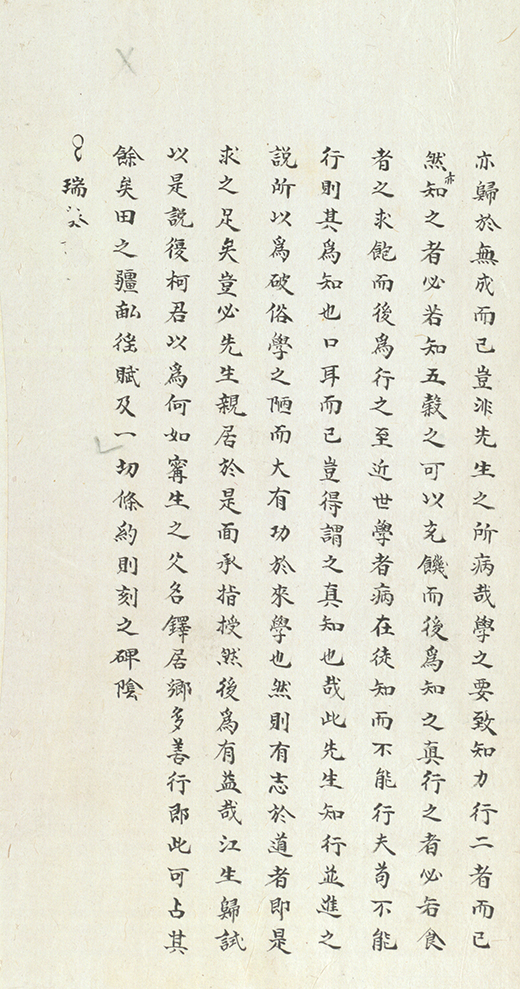 亦歸於無成而已豈非先生之所病哉學之要致知力行二者而已
然亦知之者必若知五穀之可以充饑而後爲知之真行之者必若食
者之求飽而後爲行之至近世學者病在徒知而不能行夫苟不能
行則其爲知也口耳而已豈得謂之真知也哉此先生知行並進之
説所以爲破俗學之陋而大有功於來學也然則有志於道者即是
求之足矣豈必先生親居於是面承指授然後爲有益哉江生歸試
以是説復柯君以爲何如甯生之父名鐸居鄉多善行即此可占其
餘矣田之疆畝徭賦及一切條約則刻之碑陰
瑞